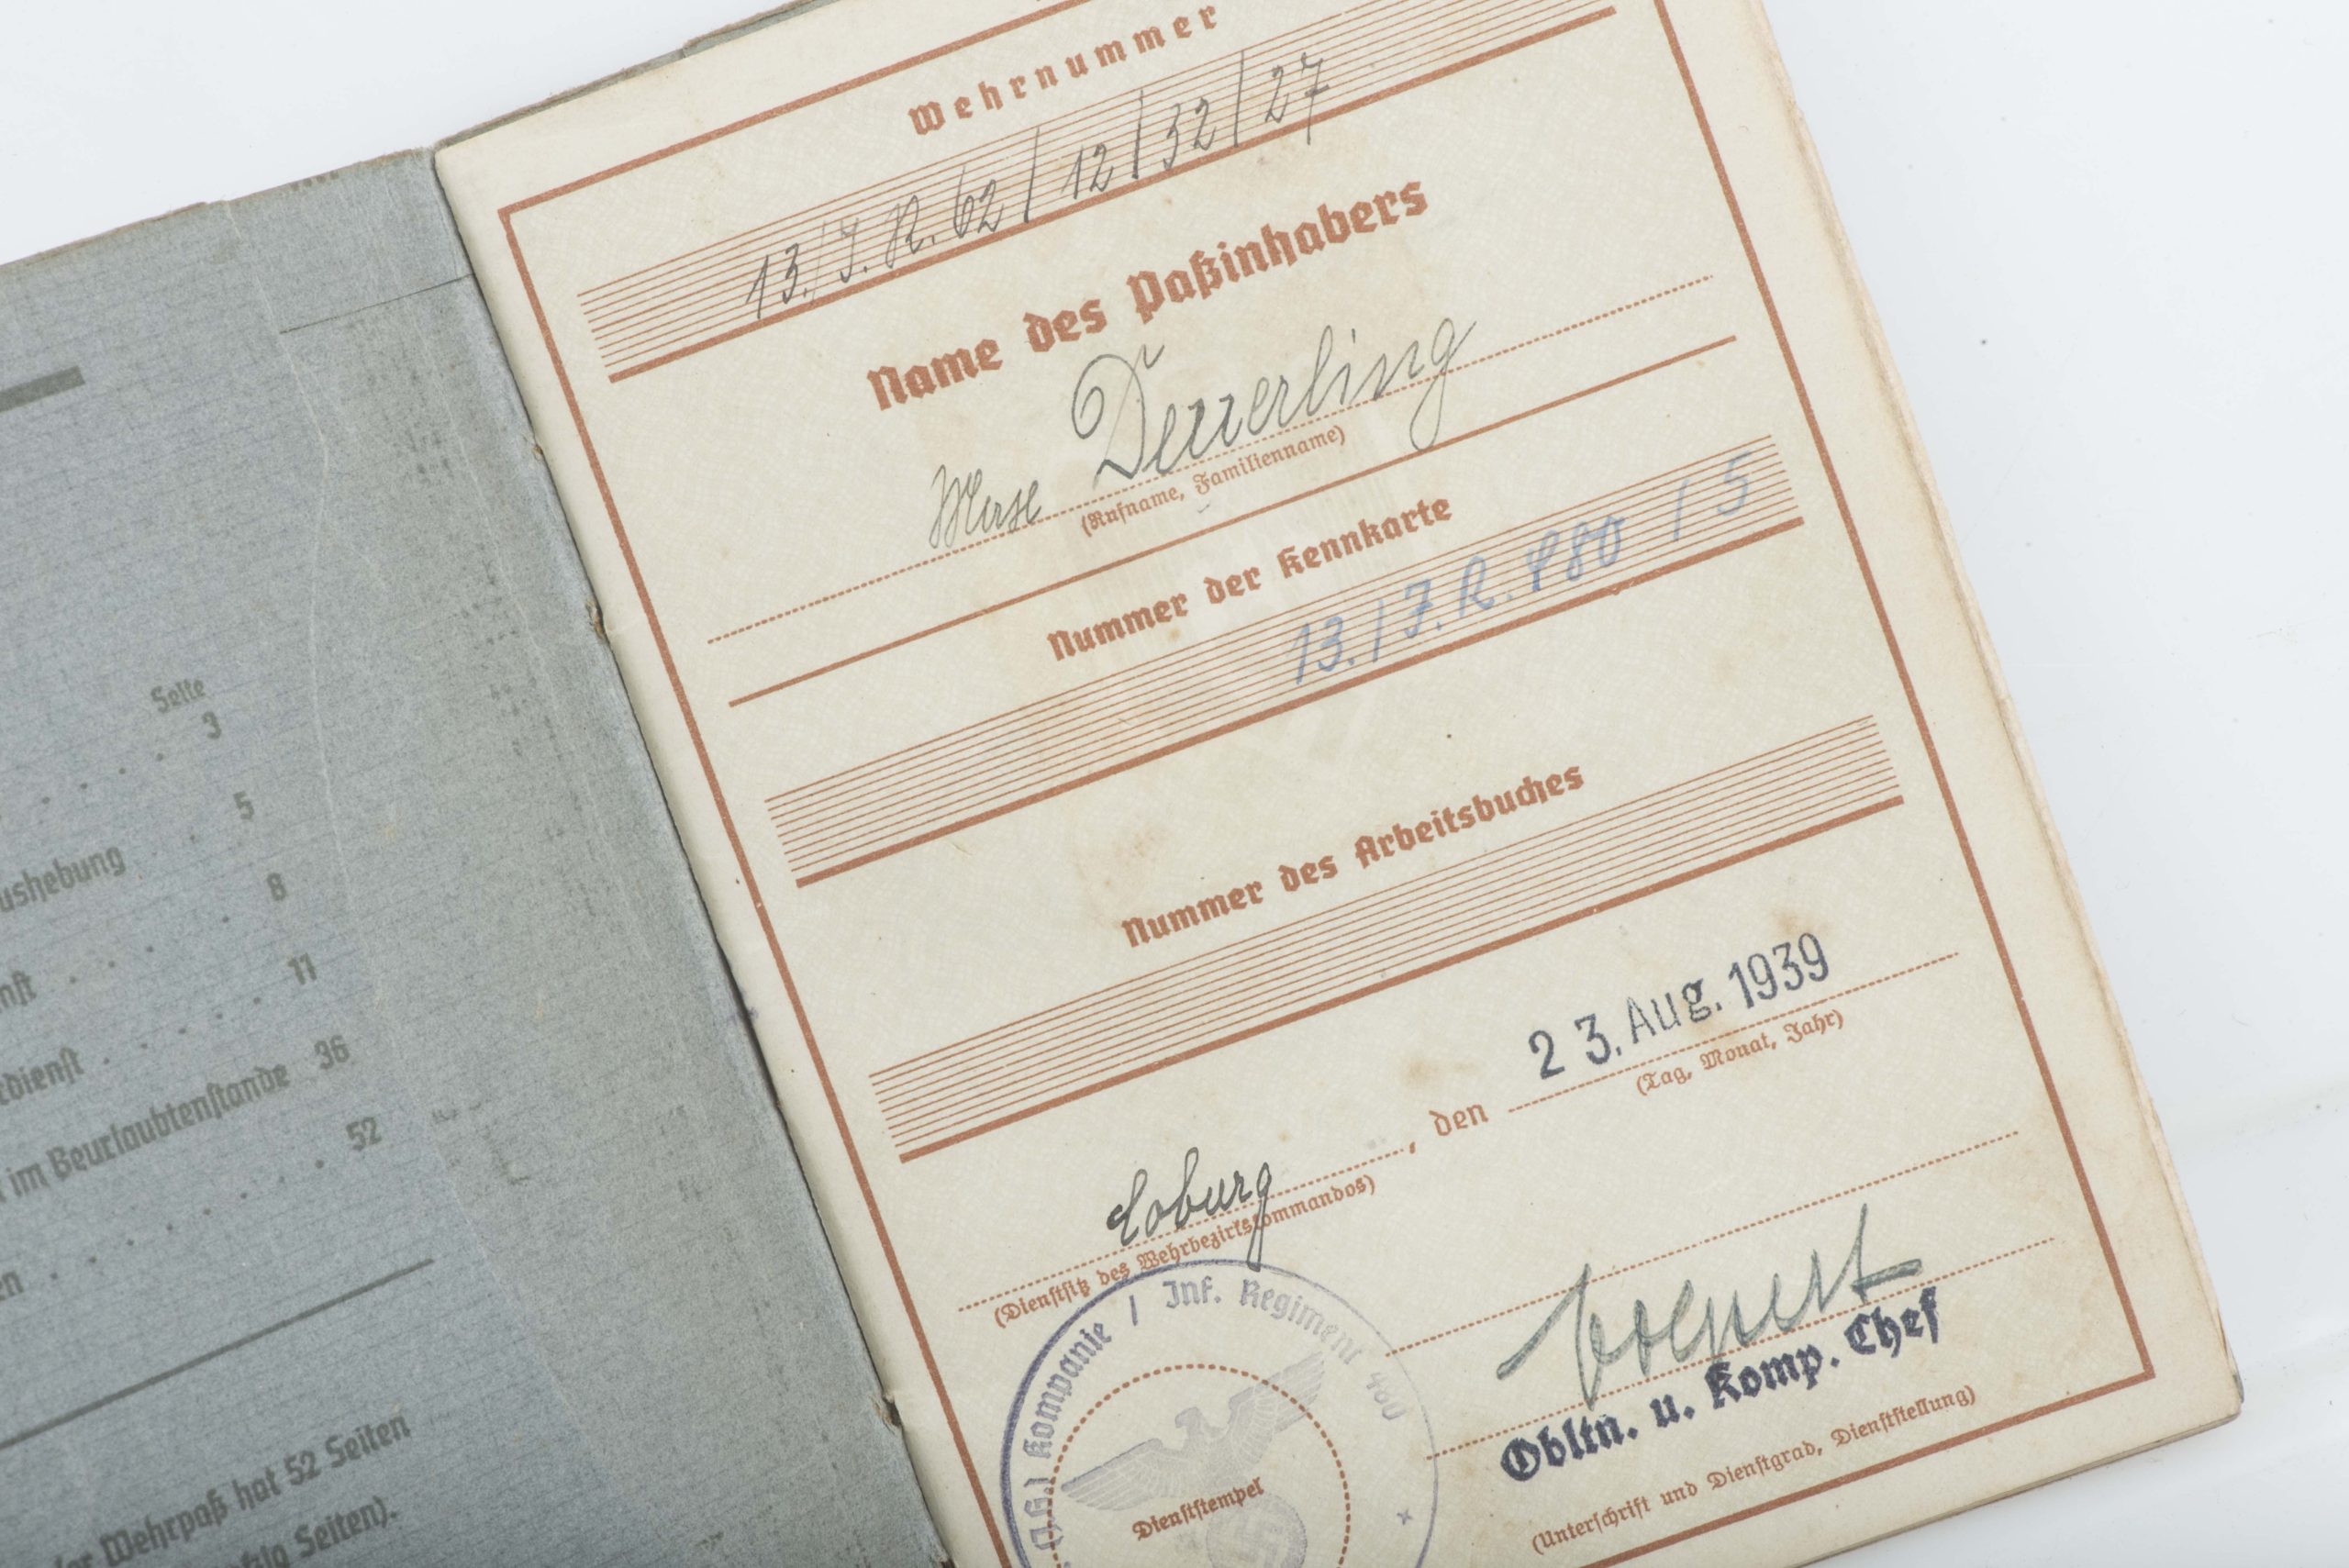 Seite
3
5
ushebung
8
nst
11
dienst
im Beurlaubtenstande 36
52
en
Wehrpaß hat 52 Seiten
Seiten).
Wehrnummer
13./J.R. 62/12/32/27
Name des Paßinhabers
Deuerling
(Rufname, Familienname)
Nummer der Kennkarte
13./J.R. 480 / 5
Nummer des Arbeitsbuches
Coburg, den 23. Aug. 1939
(Tag, Monat, Jahr)
(Dienstsitz des Wehrbezirkskommandos)
(J.G.) Kompanie / Inf. Regiment 480
Dienststempel
Obltn. u. Komp. Chef
(Unterschrift und Dienstgrad, Dienststellung)